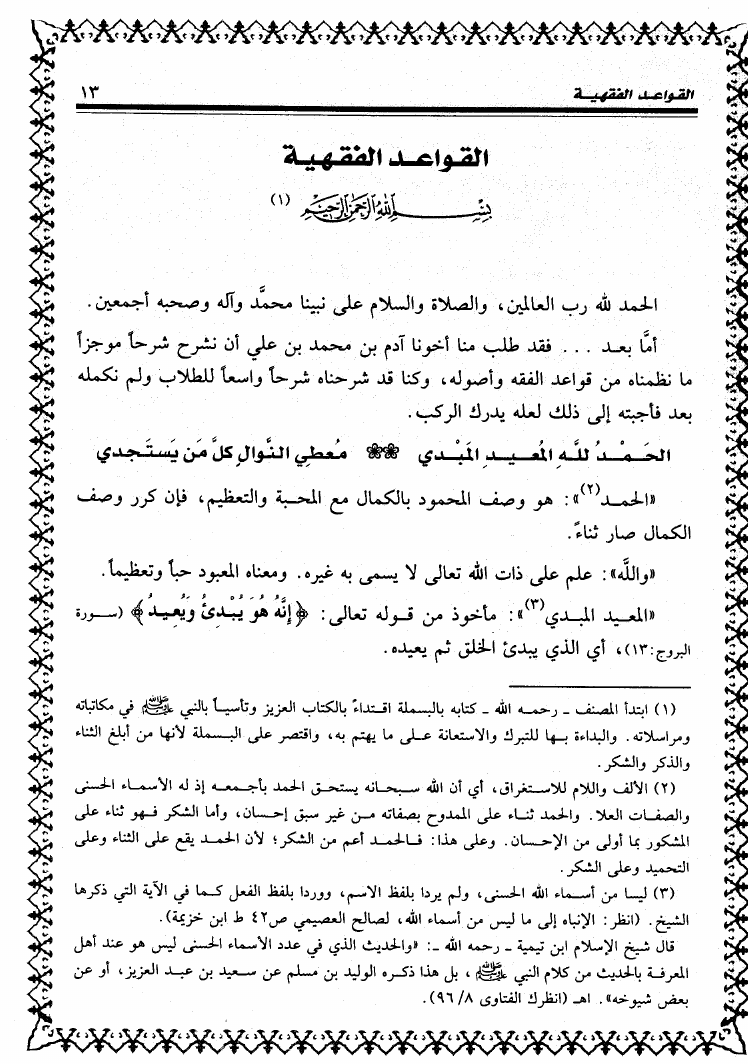 القواعد الفقهية ١٣
القواعد الفقهية
بِسْمِ اللهِ الرَّحْمٰنِ الرَّحِيْمِ (١)
الحمد لله رب العالمين، والصلاة والسلام على نبينا محمَّد وآله وصحبه أجمعين.
أمَّا بعد ... فقد طلب منا أخونا آدم بن محمد بن علي أن نشرح شرحاً موجزاً
ما نظمناه من قواعد الفقه وأصوله، وكنا قد شرحناه شرحاً واسعاً للطلاب ولم نكمله
بعد فأجبته إلى ذلك لعله يدرك الركب.
الحَمْدُ للَّهِ المُعيدِ المَبْدي ❀❀ مُعطي النَّوالِ كلَّ مَن يَستَجدي
«الحمد(٢)»: هو وصف المحمود بالكمال مع المحبة والتعظيم، فإن كرر وصف
الكمال صار ثناءً.
«والله»: علم على ذات الله تعالى لا يسمى به غيره. ومعناه المعبود حباً وتعظيماً.
«المعيد المبدي(٣)»: مأخوذ من قوله تعالى: ﴿إِنَّهُ هُوَ يُبْدِئُ وَيُعِيدُ﴾ (سورة
البروج:١٣)، أي الذي يبدئ الخلق ثم يعيده.
(١) ابتدأ المصنف ـ رحمه الله ـ كتابه بالبسملة اقتداءً بالكتاب العزيز وتأسياً بالنبي ﷺ في مكاتباته
ومراسلاته. والبداءة بها للتبرك والاستعانة على ما يهتم به، واقتصر على البسملة لأنها من أبلغ الثناء
والذكر والشكر.
(٢) الألف واللام للاستغراق، أي أن الله سبحانه يستحق الحمد بأجمعه إذ له الأسماء الحسنى
والصفات العلا. والحمد ثناء على الممدوح بصفاته من غير سبق إحسان، وأما الشكر فهو ثناء على
المشكور بما أولى من الإحسان. وعلى هذا: فالحمد أعم من الشكر؛ لأن الحمد يقع على الثناء وعلى
التحميد وعلى الشكر.
(٣) ليسا من أسماء الله الحسنى، ولم يردا بلفظ الاسم، ووردا بلفظ الفعل كما في الآية التي ذكرها
الشيخ. (انظر: الإنباه إلى ما ليس من أسماء الله، لصالح العصيمي ص٤٢ ط ابن خزيمة).
قال شيخ الإسلام ابن تيمية ـ رحمه الله ـ: «والحديث الذي في عدد الأسماء الحسنى ليس هو عند أهل
المعرفة بالحديث من كلام النبي ﷺ، بل هذا ذكره الوليد بن مسلم عن سعيد بن عبد العزيز، أو عن
بعض شيوخه». اهـ (انظرك الفتاوى ٨/ ٩٦).